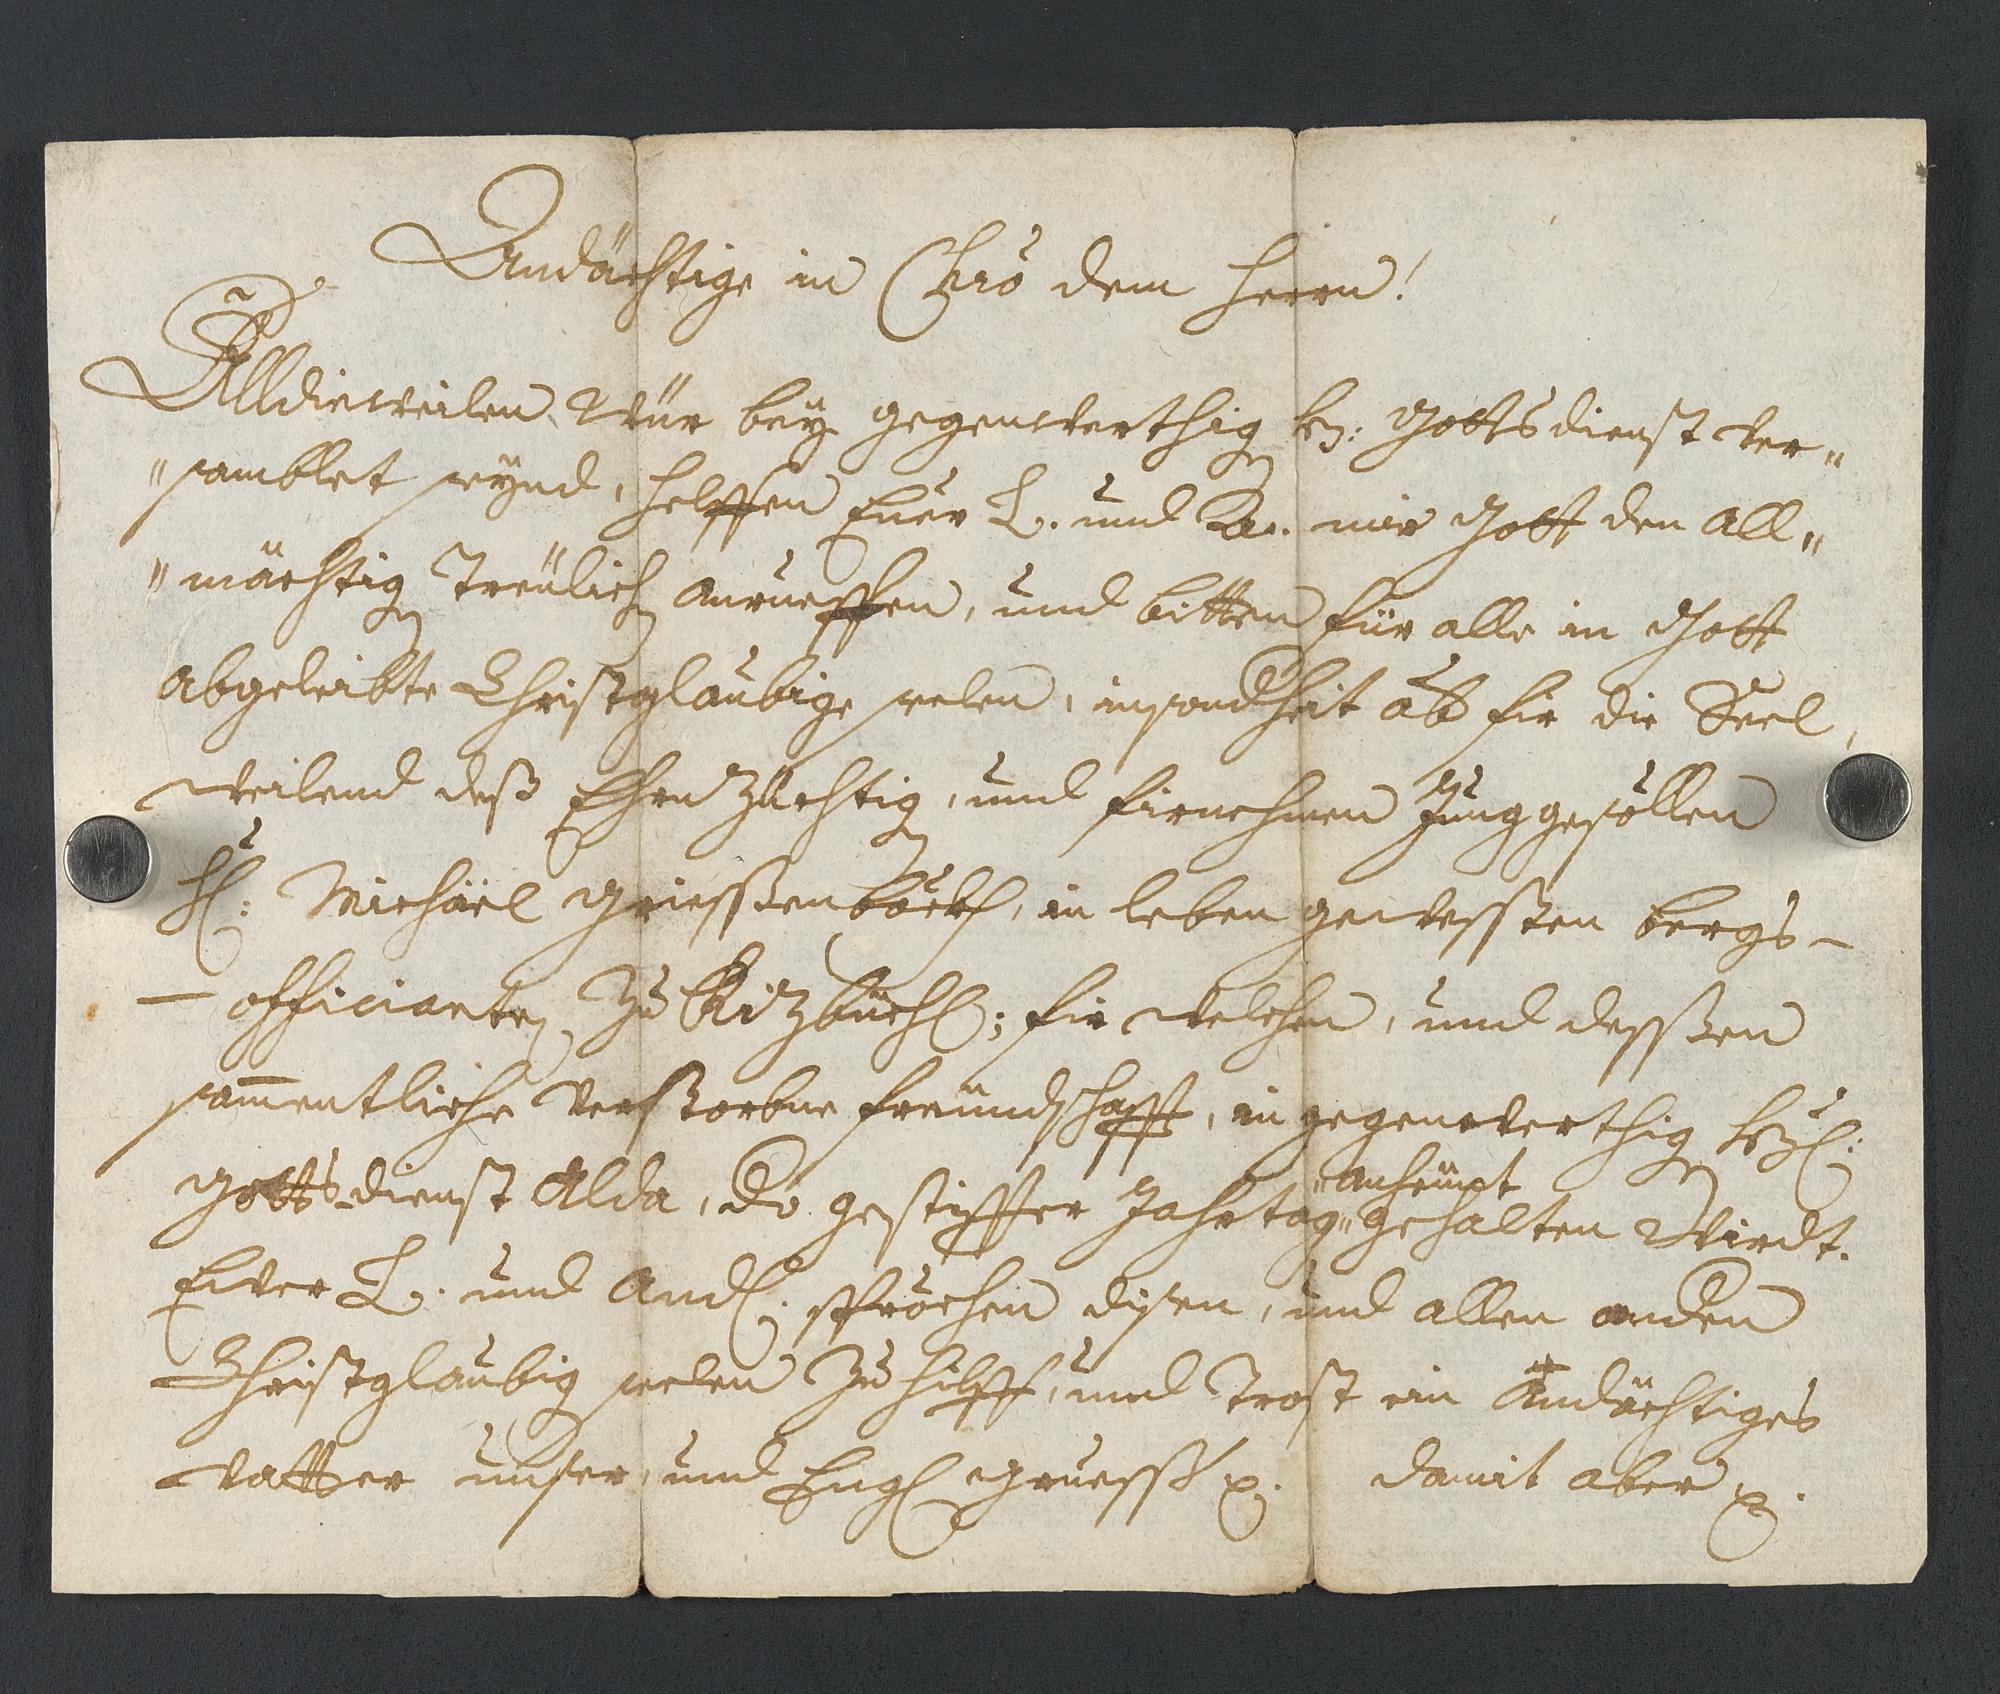 Andächtige in Chrō dem Herrn!
Alldieweilen Wür bey gegenwerthig hh: Gottsdienst ver„
„samblet seynd, helffen Euer L. und An. mir Gott den All„
„mächtig Treülich anrueffen, und bitten für alle in Gott
abgeleibte Christglaubige seelen, insond'heit ab' fir die Seel,
weilend deß Ehrnzüchtig, und firnehmen Junggesöllen
H: Michäel Griessenböckh, in leben gewessten bergs-
- officianten zu Kitzbüchl; fir welchen, und dessen
sam̄entliche verstorbne freündschafft, in gegenwerthig
Gottsdienst Alda, d' gestiffter Jahrtag „anheünt„ gehalten Wirdt.
Eiver L. und And: spröchen disen, und allen anden
Christglaubig seelen zu hilff, und Trost ein Andächtiges
vatter unser, und Engl: gruess p. damit aber p.